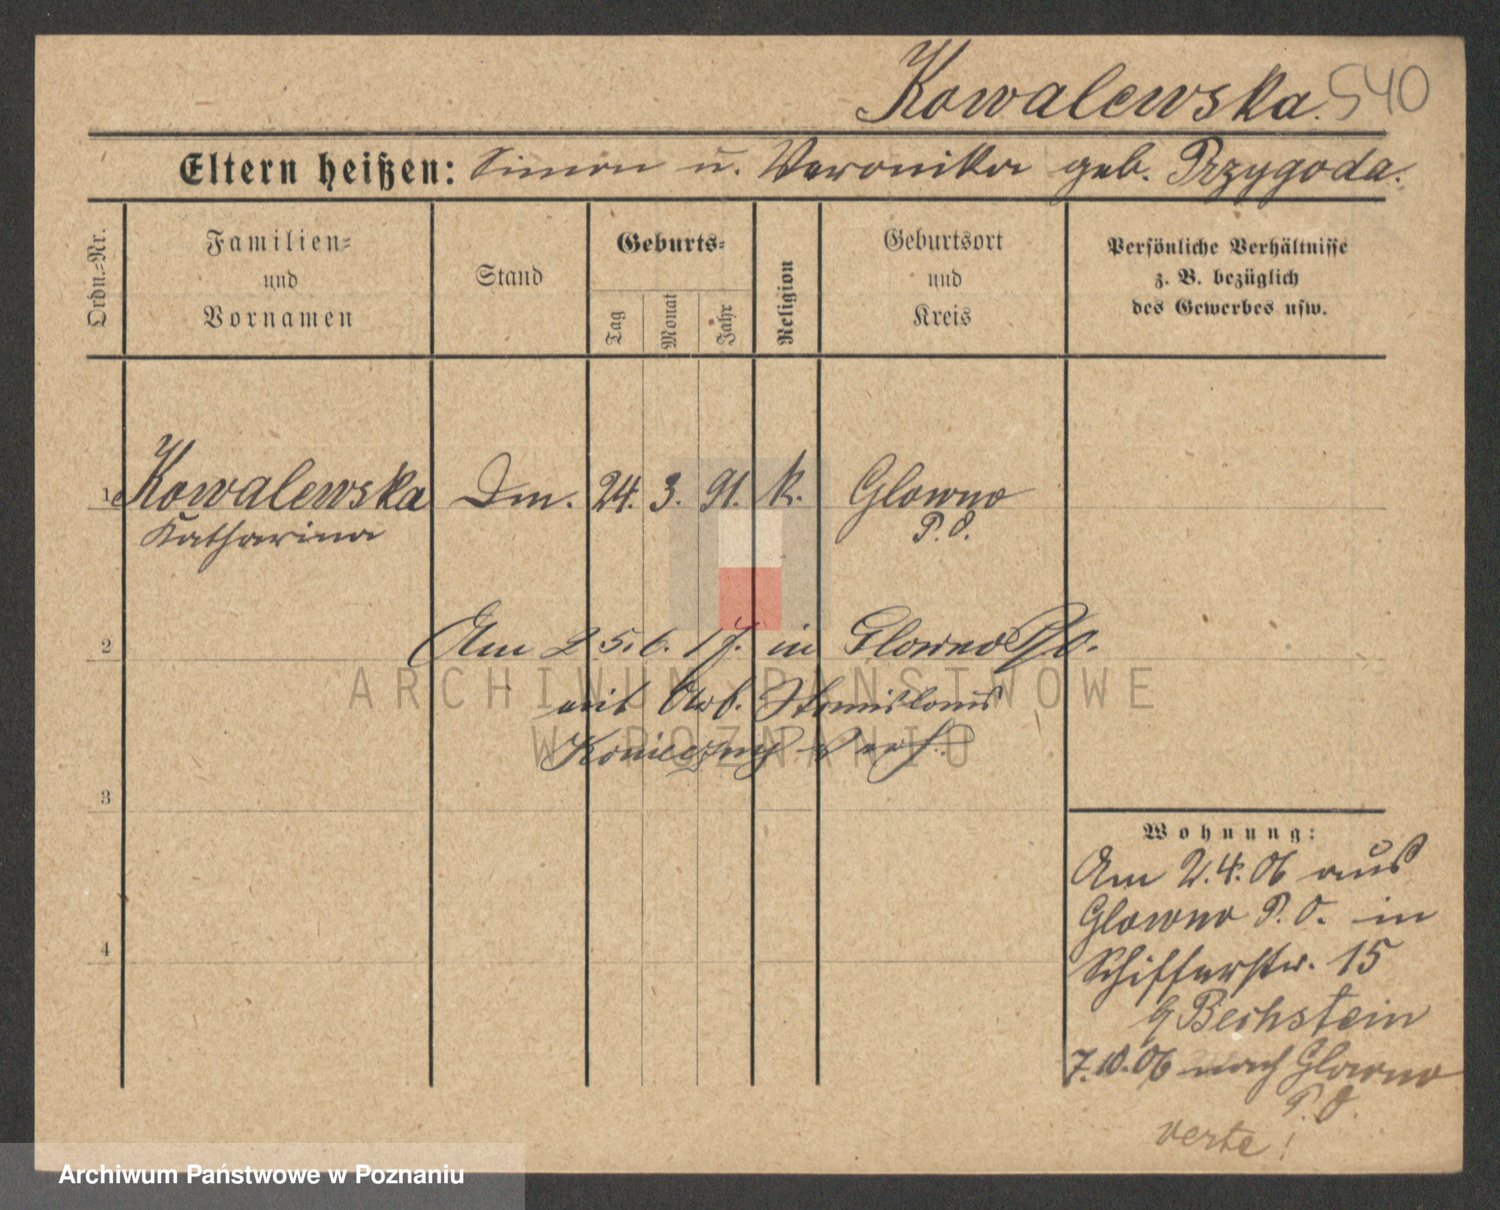 Kowalewska. 540
Eltern heißen: Simon u. Veronika geb. Przygoda.
Ordn.-Nr.
Familien-
und
Vornamen
Stand
Geburts-
Tag
Monat
Jahr
Religion
Geburtsort
und
Kreis
Persönliche Verhältnisse
z. B. bezüglich
des Gewerbes usw.
1 Kowalewska Dm. 24. 3. 91. k. Glowno
Katharina P. O.
2 Am 25.6.17. in Glowno P/O.
mit Arb. Stanislaus
Konieczny verh.
3
4
Wohnung:
Am 2.4.06 aus
Glowno P. O. in
Schifferstr. 15
Bechstein
7.10.06 nach Glowno
P. O.
verte!
ARCHIWUM PAŃSTWOWE
W POZNANIU
Archiwum Państwowe w Poznaniu